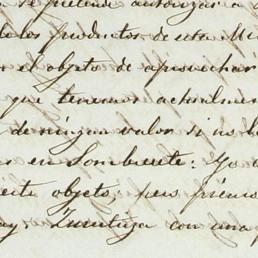 se pretende autorizar a
de los productos de esta Mi
el objeto de aprovechar
que tenemos actualmen
de ningun valor si no lo
en Sombrerete: Yo
este objeto, pues
y Zuniga con una